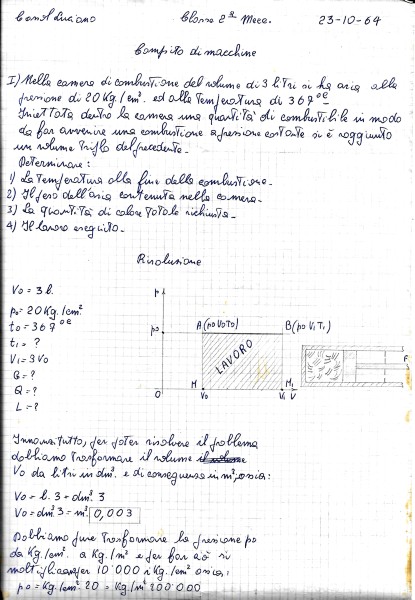 Const. Luciano Classe 2ª Mecc. 23-10-64
Compito di macchine
I) Nella camera di combustione del volume di 3 litri si ha aria alla
pressione di 20 Kg./cm². ed alla temperatura di 367°C
Iniettata dentro la camera una quantità di combustibile in modo
da far avvenire una combustione a pressione costante si è raggiunto
un volume triplo del precedente.
Determinare:
1) La temperatura alla fine della combustione.
2) Il peso dell'aria contenuta nella camera.
3) La quantità di calore totale richiesta.
4) Il lavoro eseguito.
Risoluzione
V₀ = 3 l.
p₀ = 20 Kg./cm²
t₀ = 367°C
t₁ = ?
V₁ = 3V₀
G = ?
Q = ?
L = ?
p
p₀ A (p₀ V₀ T₀) B (p₀ V₁ T₁)
LAVORO
F
O M V₀ V₁ M₁ V
Innanzitutto, per poter risolvere il problema
dobbiamo trasformare il volume
V₀ da litri in dm³. e di conseguenza in m³, ossia:
V₀ = l. 3 = dm³. 3
V₀ = dm³. 3 = m³. 0,003
Dobbiamo pure trasformare la pressione p₀
da Kg./cm². a Kg./m² e per far ciò si
moltiplica per 10'000 i Kg./cm². ossia:
p₀ = Kg./cm². 20 = Kg./m² 200'000